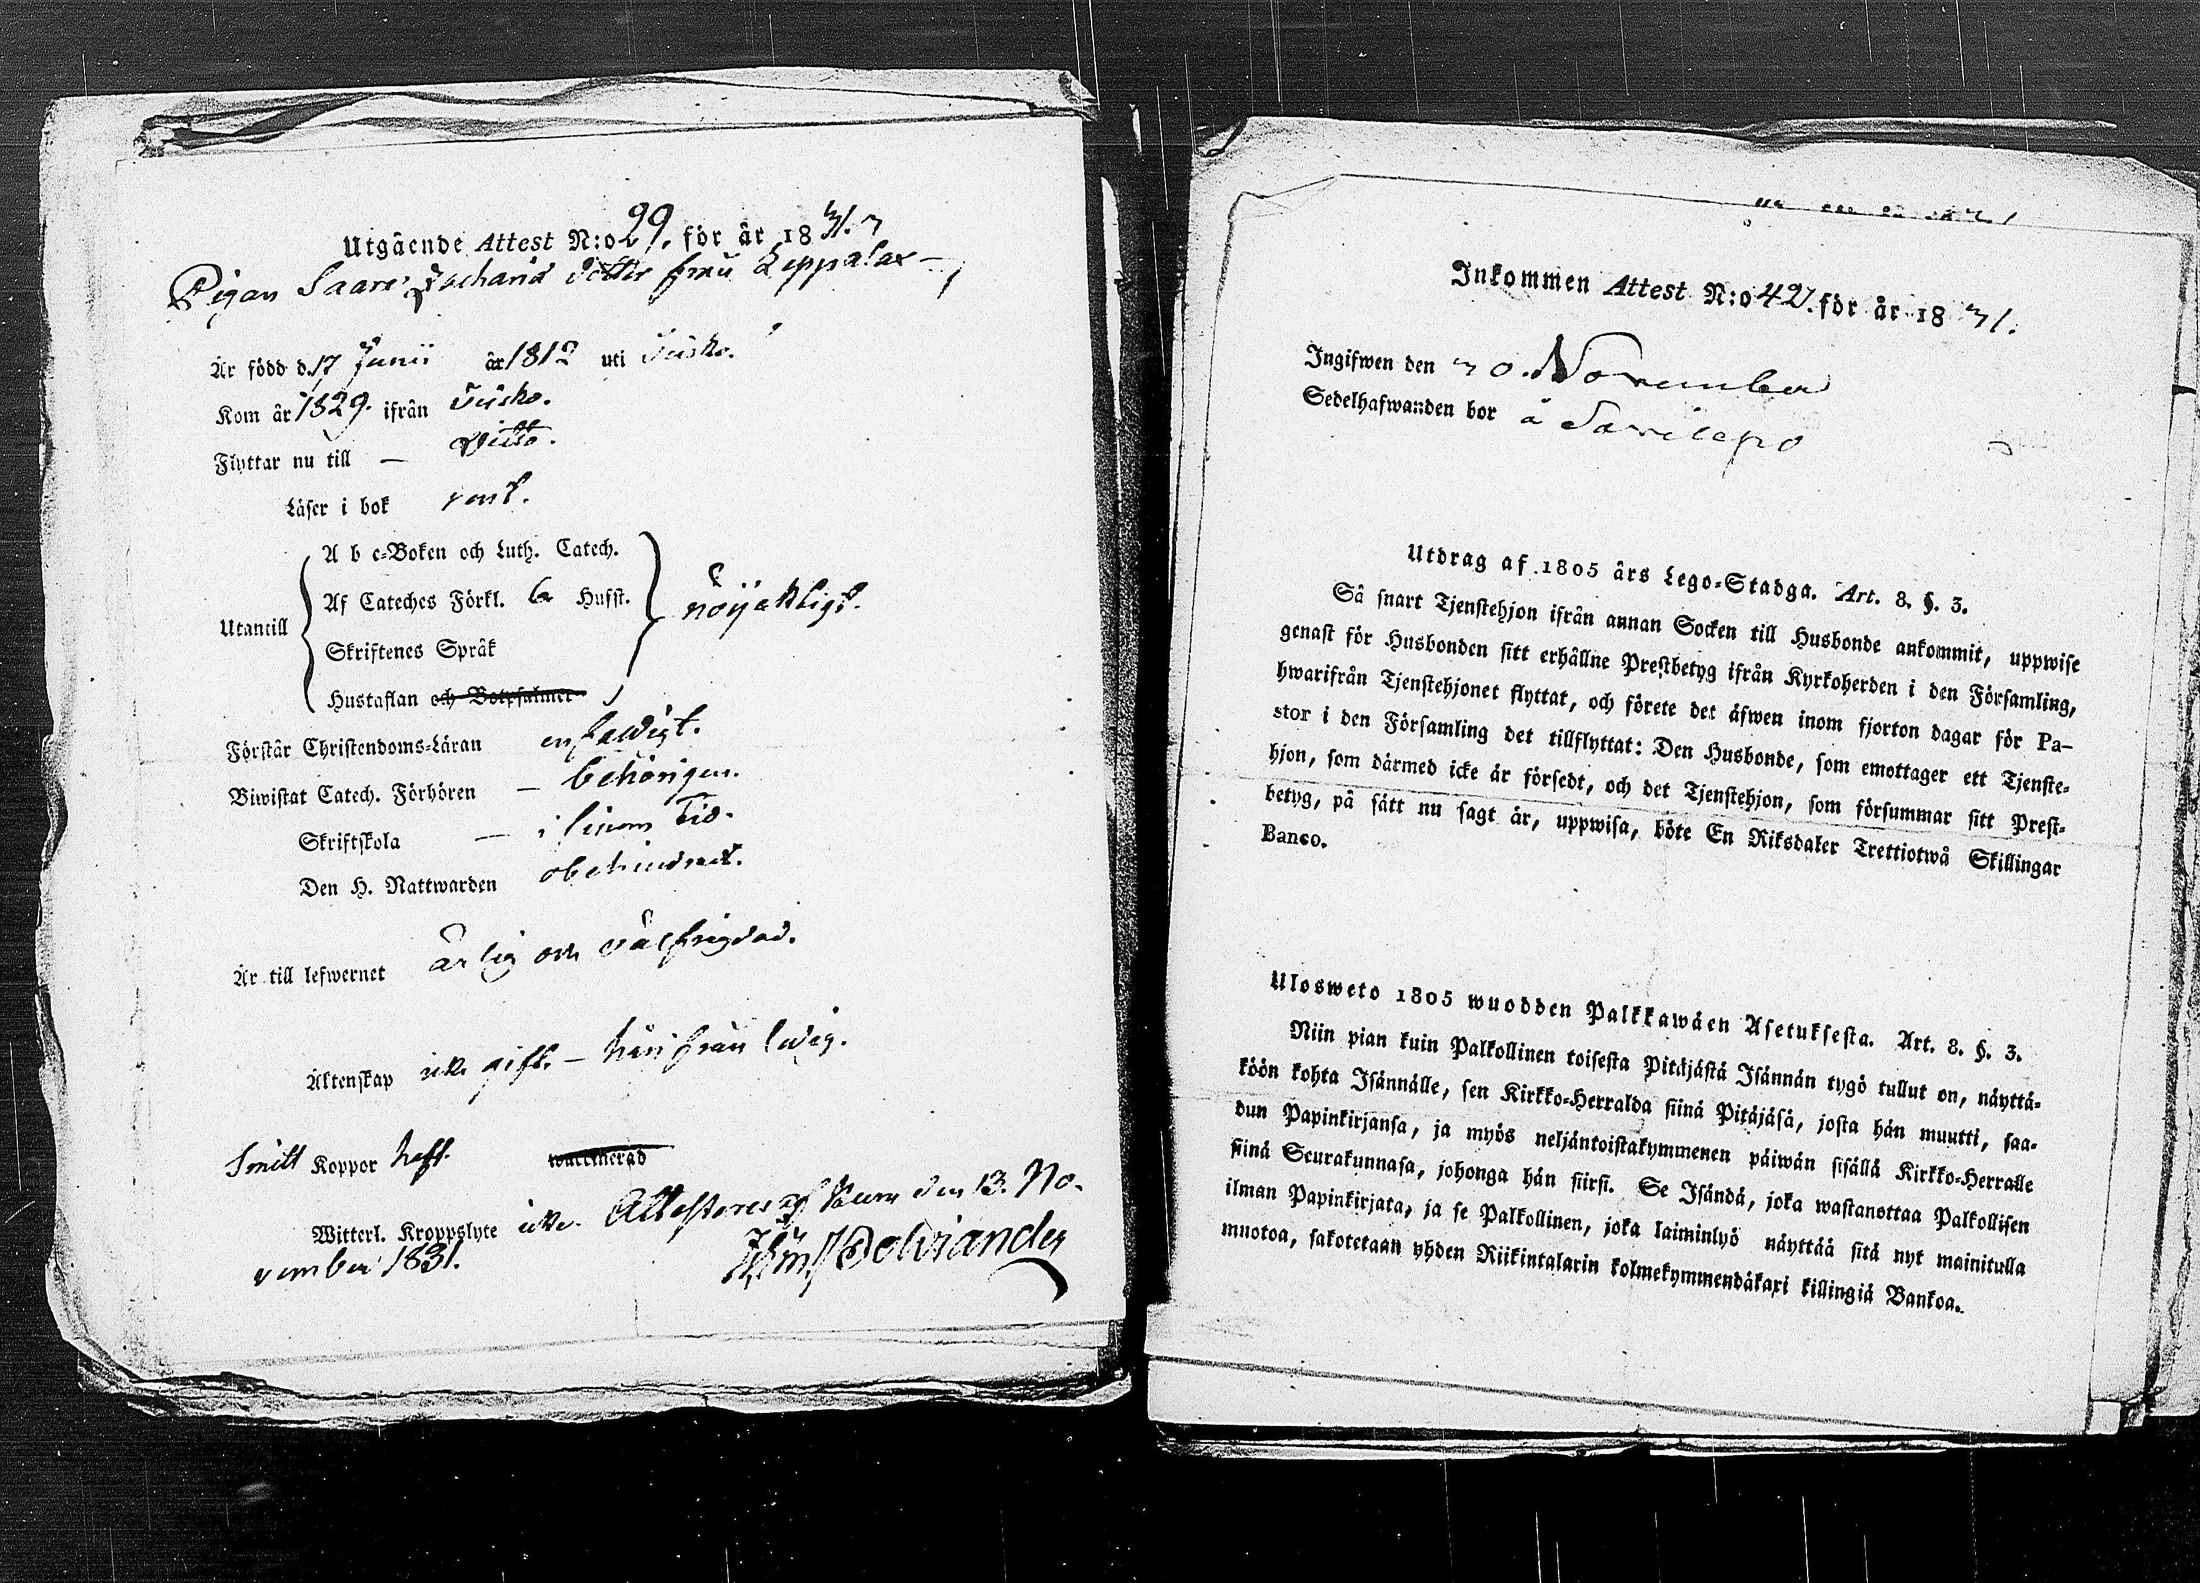 Utgående Attest N:o 29. för år 1831.
Pigan Saara Zacharia dotter från Leppalax
Är född d. 17 Junii år 1812 uti Tuisko.
Kom år 1829. ifrån Tuisko.
Flyttar nu till — Ditto.
Läser i bok rent.
A b c-Boken och Luth. Catech.
Af Cateches Förkl. Hufst. nöijaktligt.
Utantill
Skriftenes Språk
Hustaflan och Botpsalmer
Förstår Christendoms-Läran enfaldigt.
Biwistat Catech. Förhören — behörigen.
Skriftskola — i sinom tid.
Den H. Nattwarden obehindrat.
Är till lefwernet ärlig och välfrägdad.
Äktenskap icke gift. — härifrån ledig.
Smitt Koppor haft. waccinerad
Witterl. Kroppslyte icke. Attesteres af den 13. No-
vember 1831. Dolviander
Inkommen Attest N:o 42. för år 1831.
Ingifwen den 30. November
Sedelhafwanden bor å
Utdrag af 1805 års Lego-Stadga. Art. 8. §. 3.
Så snart Tjenstehjon ifrån annan Socken till Husbonde ankommit, uppwise
genast för Husbonden sitt erhållne Prestbetyg ifrån Kyrkoherden i den Församling,
hwarifrån Tjenstehjonet flyttat, och förete det äfwen inom fjorton dagar för Pa-
stor i den Församling det tillflyttat: Den Husbonde, som emottager ett Tjenste-
hjon, som därmed icke är försedt, och det Tjenstehjon, som försummar sitt Prest-
betyg, på sätt nu sagt är, uppwisa, böte En Riksdaler Trettiotwå Skillingar
Banco.
Ulosweto 1805 wuodden Palkkawäen Asetuksesta. Art. 8. §. 3.
Niin pian kuin Palkollinen toisesta Pitäjästä Isännän tygö tullut on, näyttä-
köön kohta Isännälle, sen Kirkko-Herralda siinä Pitäjäsä, josta hän muutti, saa-
dun Papinkirjansa, ja myös neljäntoistakymmenen päiwän sisällä Kirkko-Herralle
siinä Seurakunnasa, johonga hän siirsi. Se Isändä, joka wastanottaa Palkollisen
ilman Papinkirjata, ja se Palkollinen, joka laiminlyö näyttää sitä nyt mainitulla
muotoa, sakotetaan yhden Riikintalarin kolmekymmendäkaxi killingiä Bankoa.